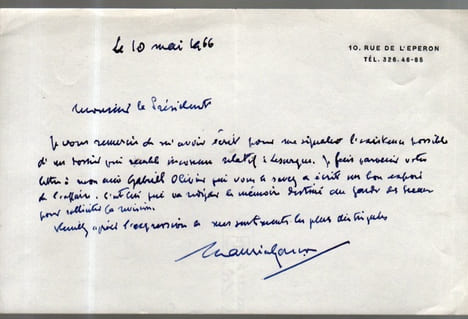 10. RUE DE L'EPERON
TÉL. 326.46-85
Le 10 mai 1966
Monsieur le Président
Je vous remercie de m'avoir écrit pour me signaler l'existence possible
d'un dossier qui semble inconnu relatif à Lesurques. Je fais parvenir votre
lettre à mon ami Gabriel Olivier qui vous le savez a écrit un bon exposé
de l'affaire. C'est lui qui va rédiger le mémoire destiné au Garde des Sceaux
pour solliciter la révision.
Veuillez agréer l'expression de mes sentiments les plus distingués